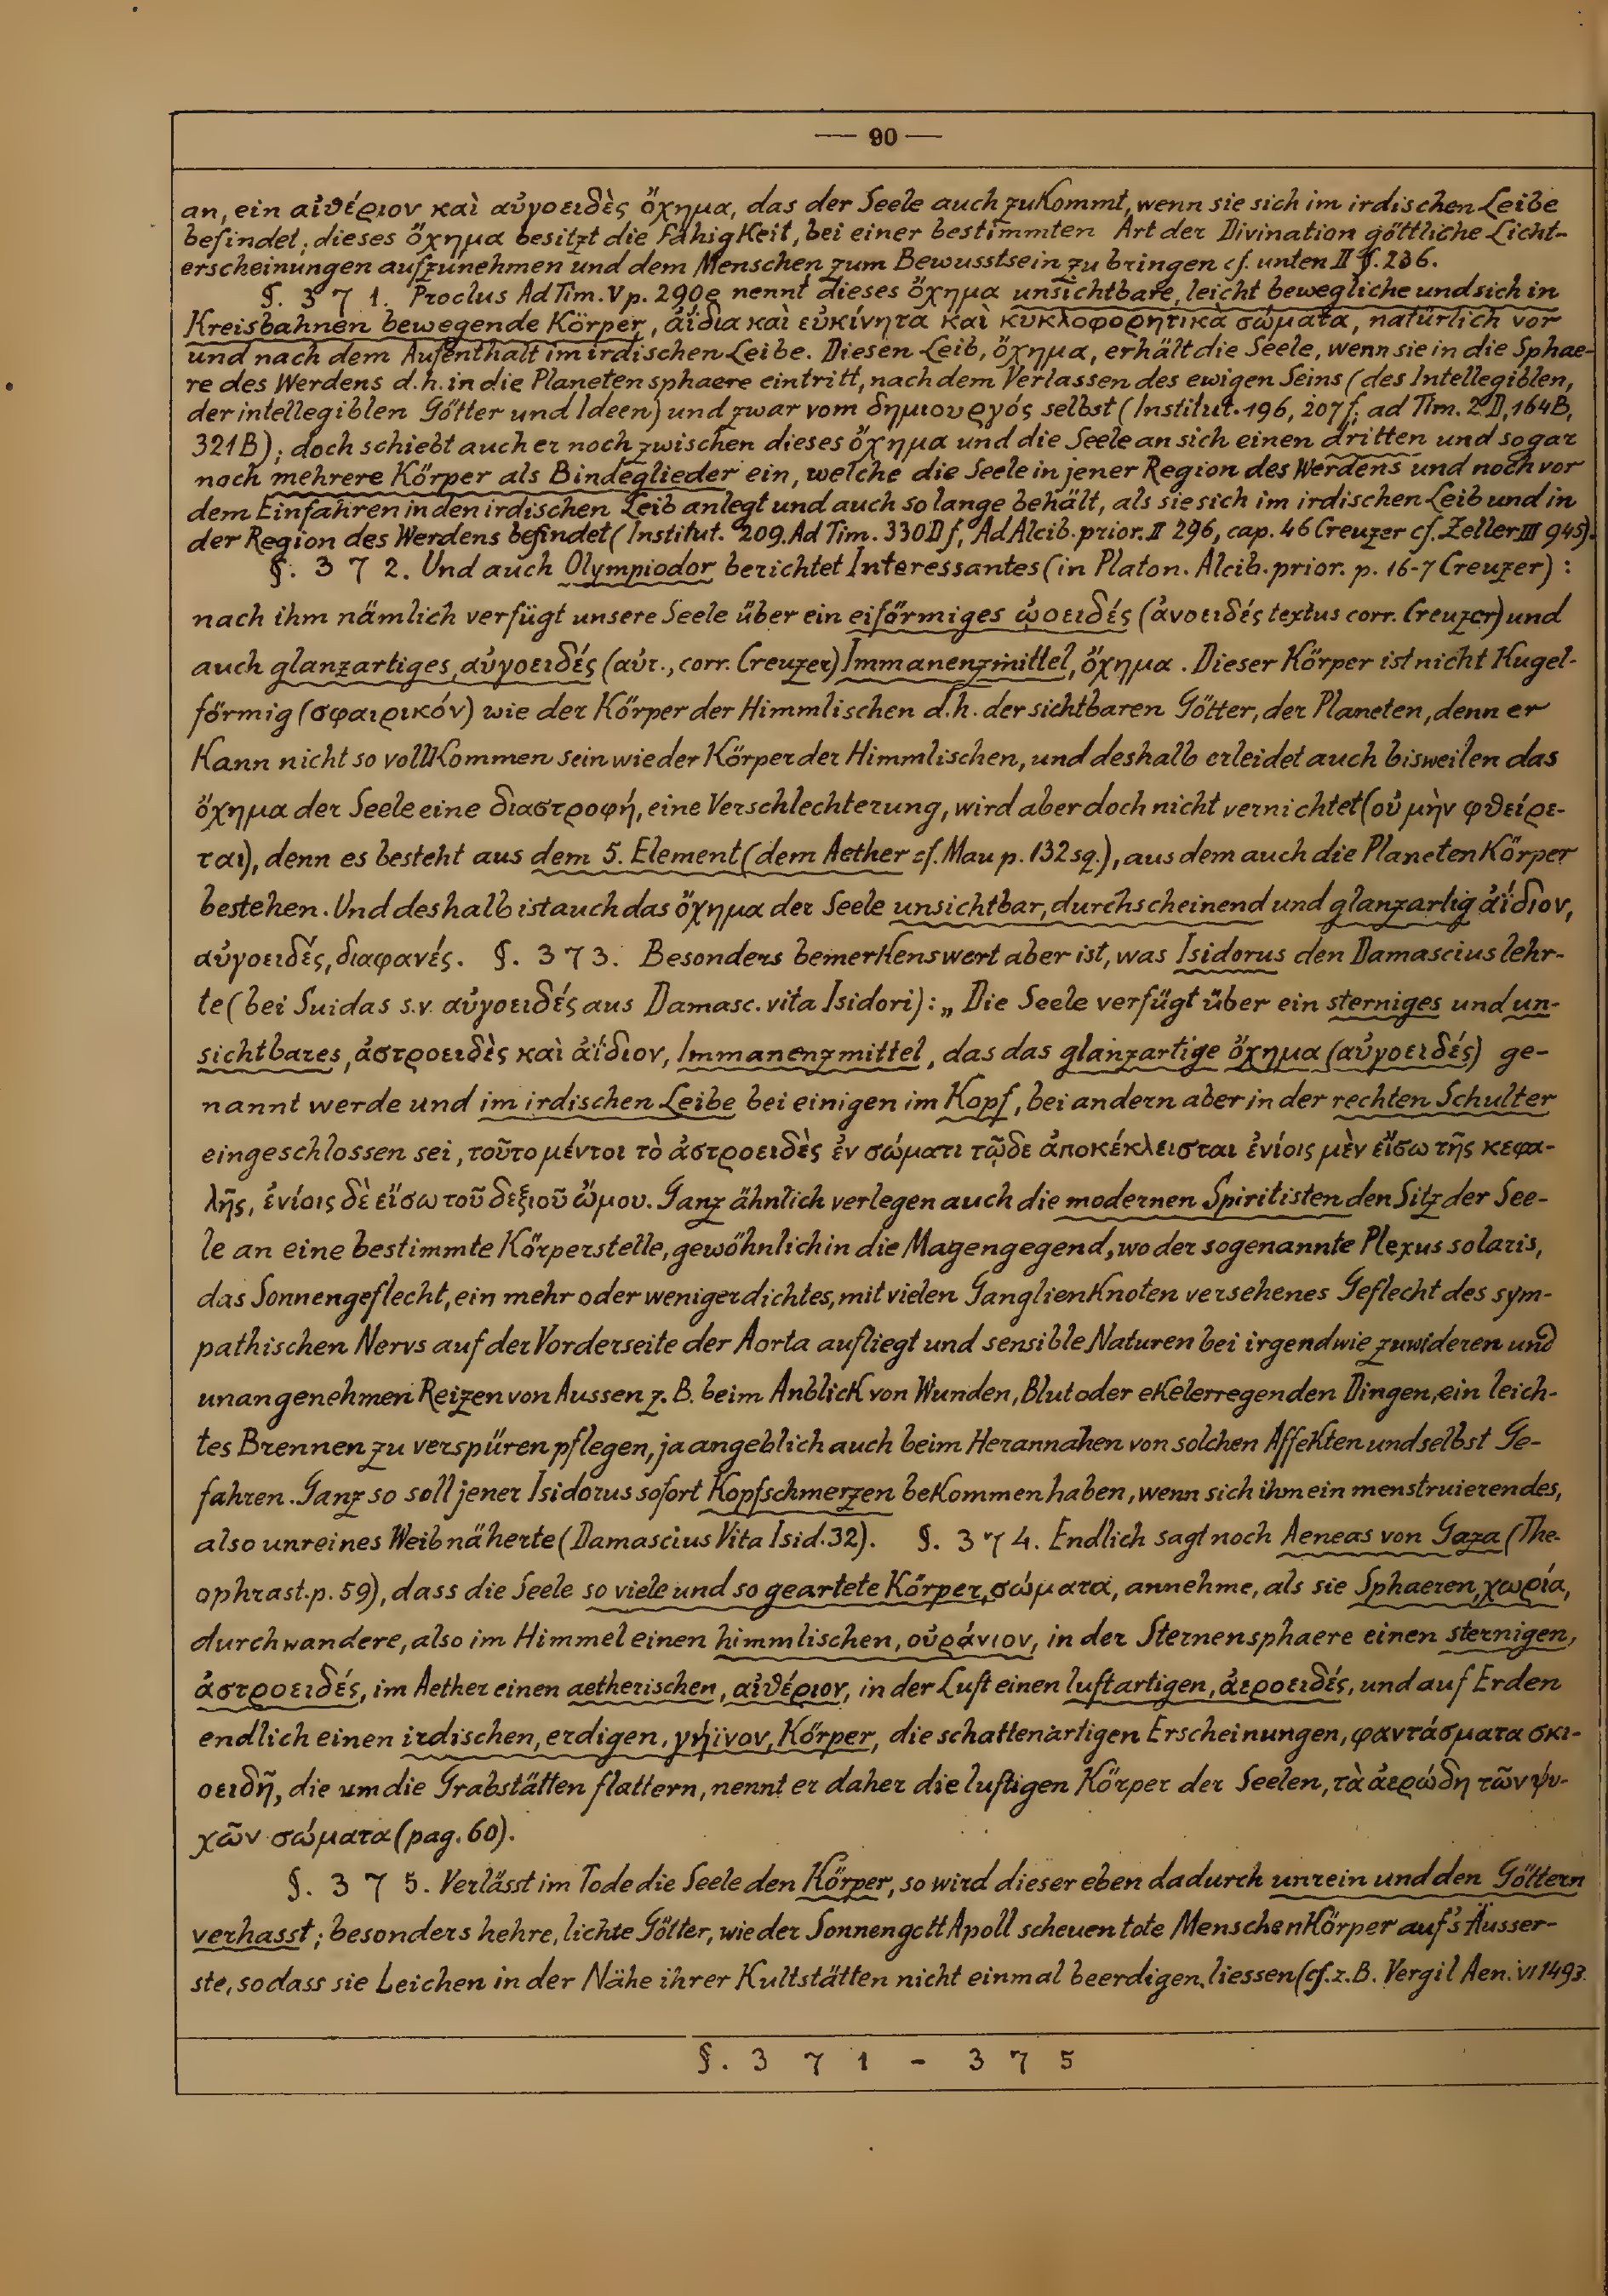 — 90 —
an, ein αἰθέριον καὶ αὐγοειδὲς ὄχημα, das der Seele auch zukommt, wenn sie sich im irdischen Leibe
befindet; dieses ὄχημα besitzt die Fähigkeit, bei einer bestimmten Art der Divination göttliche Licht-
erscheinungen aufzunehmen und dem Menschen zum Bewusstsein zu bringen cf. unten II §. 236.
§. 371. Proclus Ad Tim. V p. 290e nennt dieses ὄχημα unsichtbare, leicht bewegliche und sich in
Kreisbahnen bewegende Körper, ἀΐδια καὶ εὐκίνητα καὶ κυκλοφορητικὰ σώματα, natürlich vor
und nach dem Aufenthalt im irdischen Leibe. Diesen Leib, ὄχημα, erhält die Seele, wenn sie in die Sphae-
re des Werdens d.h. in die Planetensphaere eintritt, nach dem Verlassen des ewigen Seins (des Intellegiblen,
der intellegiblen Götter und Ideen) und zwar vom δημιουργός selbst (Institut. 196, 207f; ad Tim. 2D, 164B,
321B); doch schiebt auch er noch zwischen dieses ὄχημα und die Seele an sich einen dritten und sogar
noch mehrere Körper als Bindeglieder ein, welche die Seele in jener Region des Werdens und noch vor
dem Einfahren in den irdischen Leib anlegt und auch so lange behält, als sie sich im irdischen Leib und in
der Region des Werdens befindet (Institut. 209. Ad Tim. 330Df, Ad Alcib. prior. II 296, cap. 46 Creuzer cf. Zeller III 945).
§. 372. Und auch Olympiodor berichtet Interessantes (in Platon. Alcib. prior. p. 16-7 Creuzer):
nach ihm nämlich verfügt unsere Seele über ein eiförmiges ᾠοειδές (ἀνοειδές textus corr. Creuzer) und
auch glanzartiges, αὐγοειδές (αὐτ., corr. Creuzer) Immanenzmittel, ὄχημα. Dieser Körper ist nicht kugel-
förmig (σφαιρικόν) wie der Körper der Himmlischen d.h. der sichtbaren Götter, der Planeten, denn er
kann nicht so vollkommen sein wie der Körper der Himmlischen, und deshalb erleidet auch bisweilen das
ὄχημα der Seele eine διαστροφή, eine Verschlechterung, wird aber doch nicht vernichtet (οὐ μὴν φθείρε-
ται), denn es besteht aus dem 5. Element (dem Aether cf. Mau p. 132 sq.), aus dem auch die Planetenkörper
bestehen. Und deshalb ist auch das ὄχημα der Seele unsichtbar, durchscheinend und glanzartig ἀΐδιον,
αὐγοειδές, διαφανές. §. 373. Besonders bemerkenswert aber ist, was Isidorus den Damascius lehr-
te (bei Suidas s.v. αὐγοειδές aus Damasc. vita Isidori): „Die Seele verfügt über ein sterniges und un-
sichtbares, ἀστροειδὲς καὶ ἀΐδιον, Immanenzmittel, das das glanzartige ὄχημα (αὐγοειδές) ge-
nannt werde und im irdischen Leibe bei einigen im Kopf, bei andern aber in der rechten Schulter
eingeschlossen sei, τοῦτο μέντοι τὸ ἀστροειδὲς ἐν σώματι τῷδε ἀποκέκλεισται ἐνίοις μὲν εἴσω τῆς κεφα-
λῆς, ἐνίοις δὲ εἴσω τοῦ δεξιοῦ ὤμου. Ganz ähnlich verlegen auch die modernen Spiritisten den Sitz der See-
le an eine bestimmte Körperstelle, gewöhnlich in die Magengegend, wo der sogenannte Plexus solaris,
das Sonnengeflecht, ein mehr oder weniger dichtes, mit vielen Ganglienknoten versehenes Geflecht des sym-
pathischen Nervs auf der Vorderseite der Aorta aufliegt und sensible Naturen bei irgendwie zuwideren und
unangenehmen Reizen von Aussen z.B. beim Anblick von Wunden, Blut oder ekelerregenden Dingen, ein leich-
tes Brennen zu verspüren pflegen, ja angeblich auch beim Herannahen von solchen Affekten und selbst Ge-
fahren. Ganz so soll jener Isidorus sofort Kopfschmerzen bekommen haben, wenn sich ihm ein menstruierendes,
also unreines Weib näherte (Damascius Vita Isid. 32). §. 374. Endlich sagt noch Aeneas von Gaza (The-
ophrast. p. 59), dass die Seele so viele und so geartete Körper, σώματα, annehme, als sie Sphaeren, χωρία,
durchwandere, also im Himmel einen himmlischen, οὐράνιον, in der Sternensphaere einen sternigen,
ἀστροειδές, im Aether einen aetherischen, αἰθέριον, in der Luft einen luftartigen, ἀεροειδές, und auf Erden
endlich einen irdischen, erdigen, γήϊνον, Körper, die schattenartigen Erscheinungen, φαντάσματα σκι-
οειδῆ, die um die Grabstätten flattern, nennt er daher die luftigen Körper der Seelen, τὰ ἀερώδη τῶν ψυ-
χῶν σώματα (pag. 60).
§. 375. Verlässt im Tode die Seele den Körper, so wird dieser eben dadurch unrein und den Göttern
verhasst; besonders hehre, lichte Götter, wie der Sonnengott Apoll scheuen tote Menschenkörper auf's Äusser-
ste, sodass sie Leichen in der Nähe ihrer Kultstätten nicht einmal beerdigen liessen (cf. z.B. Vergil Aen. VI 149 3.
§. 371 - 375